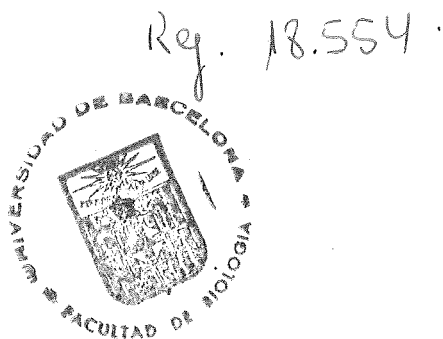 Reg. 18.554.
UNIVERSIDAD DE BARCELONA
FACULTAD DE BIOLOGIA